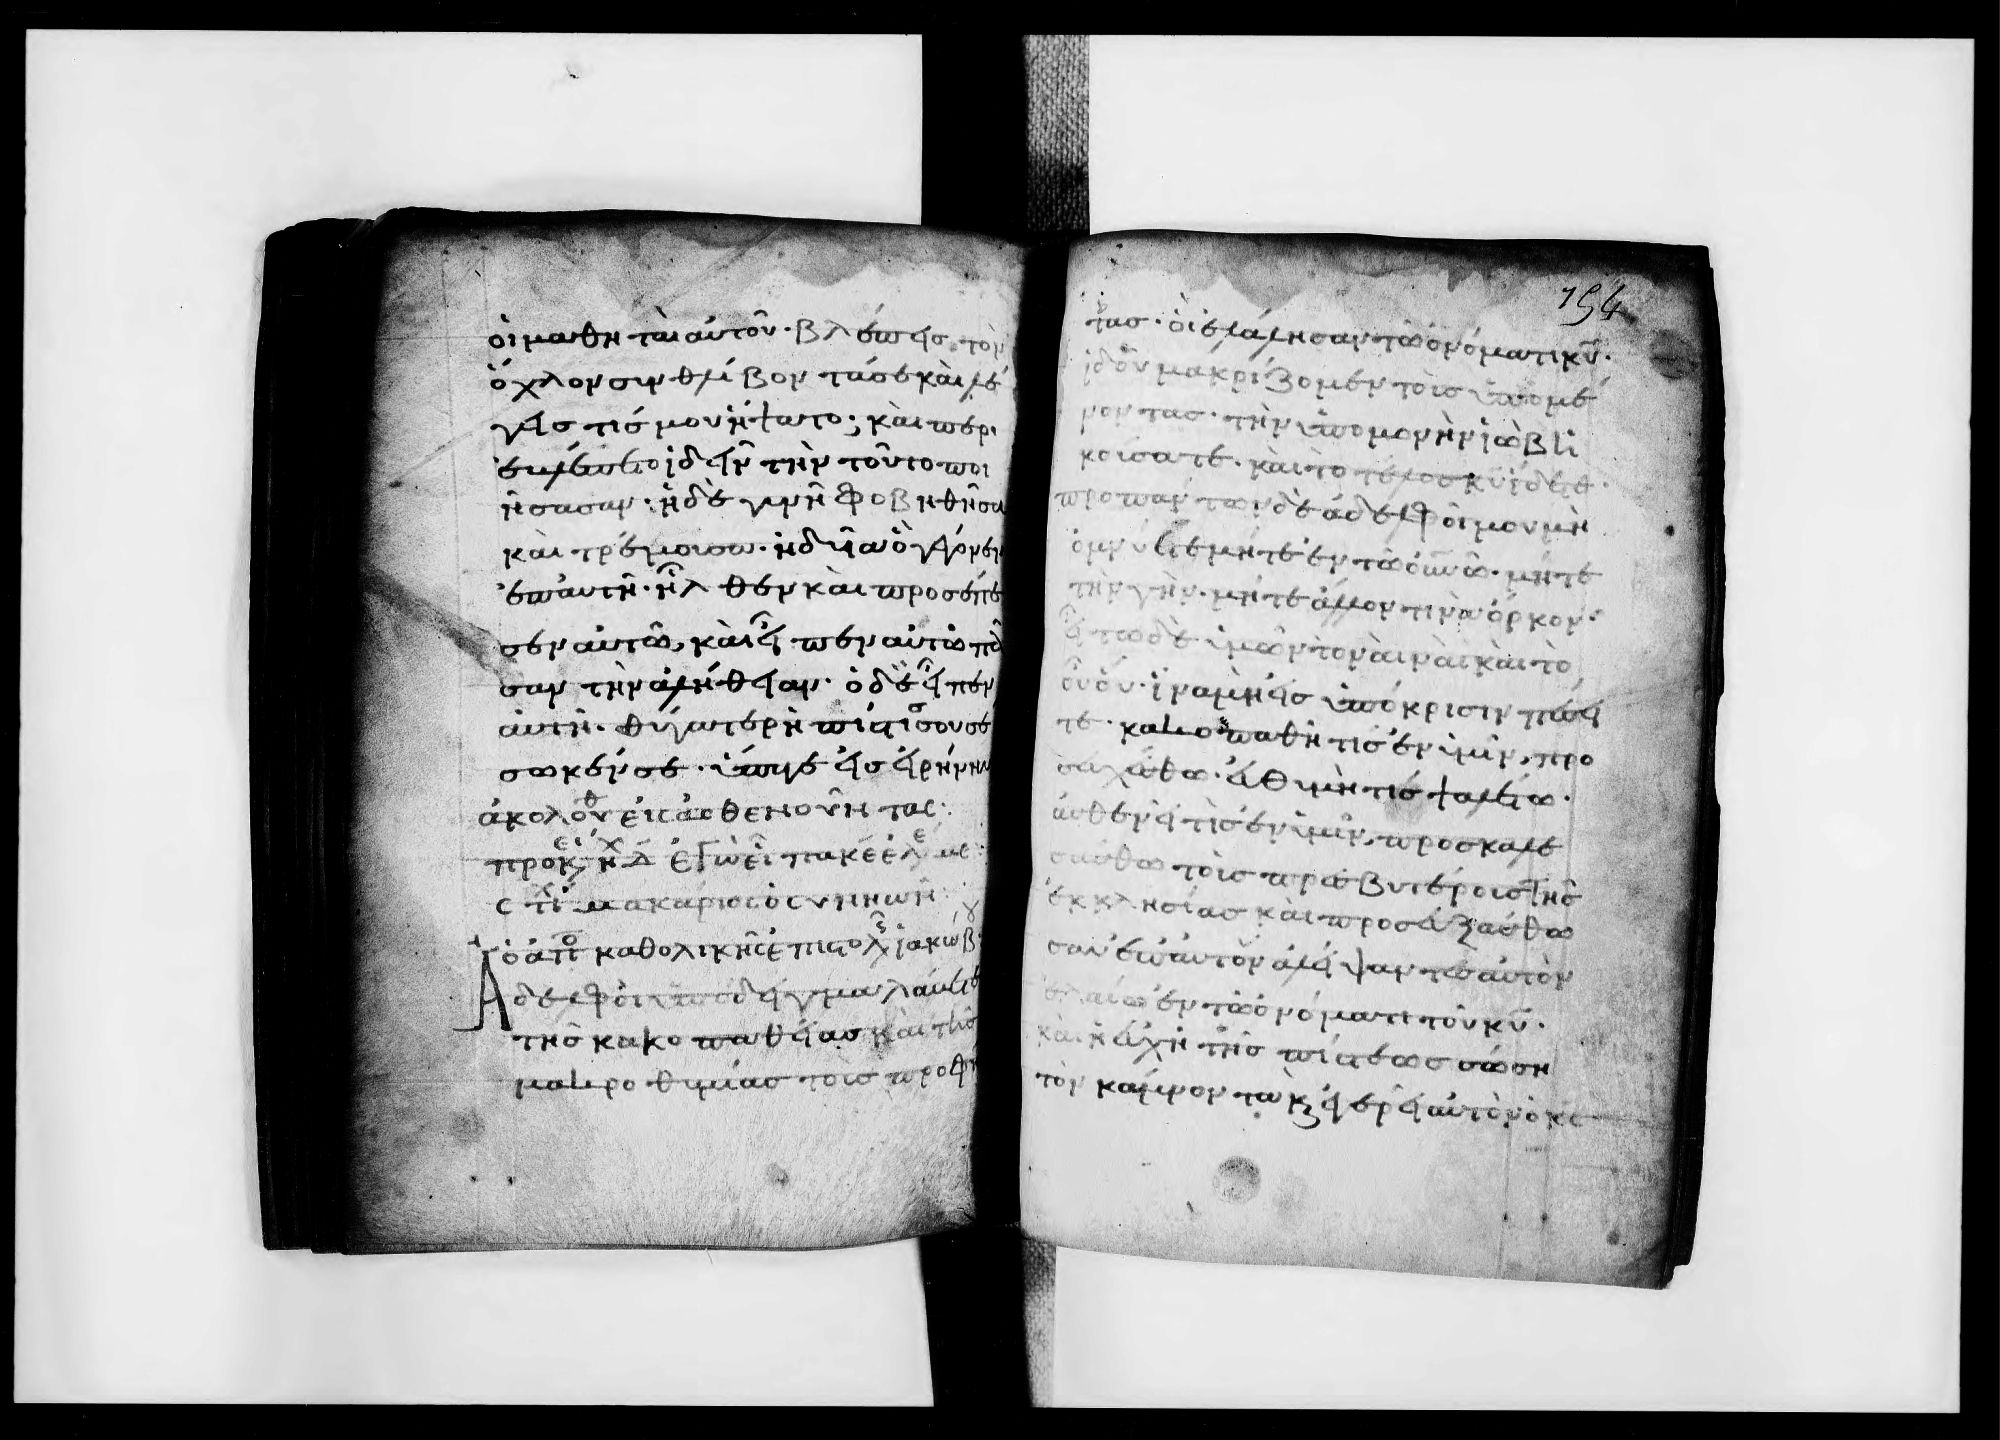 ὁι μαθηται αυτοῦ· βλέπεις τὸν
ὄχλον συνθλίβοντά σε και λέ
γεις τίς μου ἥψατο; και περι
εβλέπετο ἰδεῖν την τοῦτο ποι
ήσασαν· ἡ δὲ γυνὴ φοβηθῆσα
και τρέμουσα· ἠδυῖα ὃ γέγονεν
ἐπ αυτῆ· ἦλθεν και προσέπε
σεν αὐτῶ, και εἶπεν αὐτῶ πᾶ
σαν τὴν ἀλήθειαν· ὁ δὲ ις εἶπεν
αὐτῆ· θύγατερ ἡ πίστις σου σέ
σωκέν σε· ὕπαγε εἰς εἰρήνην
ἀκολου εἰς ἀσθενουντας:
προκει ηχ δ ἐγὼ εἶπα κε ἐλεησ με:
ς τί μακάριος ὁ συνηων
ὁ ἀπο καθολικῆς ἐπιστολ ἰακώβ:
Αδελφοὶ ὑπόδειγμα λάβετε
τῆς κακοπαθείας και τῆς
μακροθυμίας τοὺς προφή
194
τας· ὁι ἐλάλησαν τῶ ὀνόματι κυ·
ἰδοῦ μακαρίζομεν τοὺς ὑπομέ
νοντας· τὴν ὑπομονὴν ἰὼβ ἠ
κούσατε· και το τέλος κυ ἴδετε·
προ πάντων δὲ ἀδελφοί μου μὴ
ὀμνύετε μήτε ἐν τῶ ουνω· μήτε
τὴν γῆν· μήτε ἄλλον τινὰ ὅρκον·
ἤτω δὲ ὑμῶν τὸ ναι ναι και τὸ
οὒ οὔ· ἵνα μὴ εἰς ὑπόκρισιν πέση
τε· κακοπαθῆ τις ἐν ὑμῖν, προ
σευχέσθω· εὐθυμῆ τίς ψαλλέτω·
ἀσθενεῖ τὶς ἐν ὑμῖν, προσκαλε
σάσθω τοὺς πρεσβυτέρους τῆς
ἐκκλησίας και προσευξάσθω
σαν ἐπ αὐτὸν ἀλείψαντες αὐτὸν
ἐλαίω ἐν τῶ ὀνόματι τοῦ κυ·
και ἡ εὐχὴ τῆς πίστεως σώση
τὸν κάμνοντα κ ἐγερεῖ αὐτὸν ὁ κς